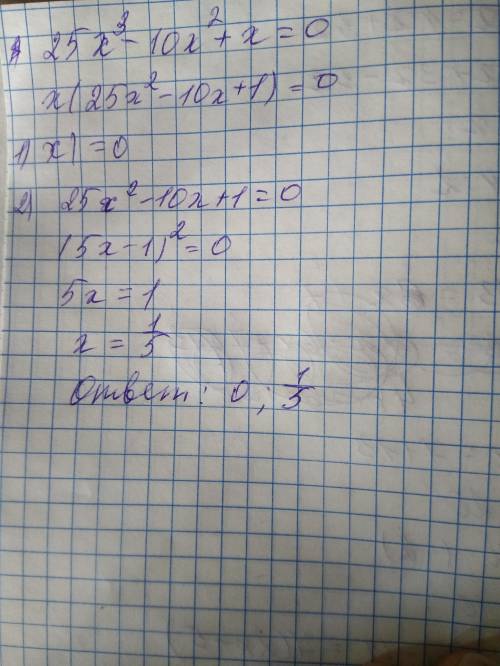 25x³ - 10x² + x = 0
x(25x² - 10x + 1) = 0
1) x) = 0
2) 25x² - 10x + 1 = 0
(5x - 1)² = 0
5x = 1
x = 1/5
Ответ: 0; 1/5